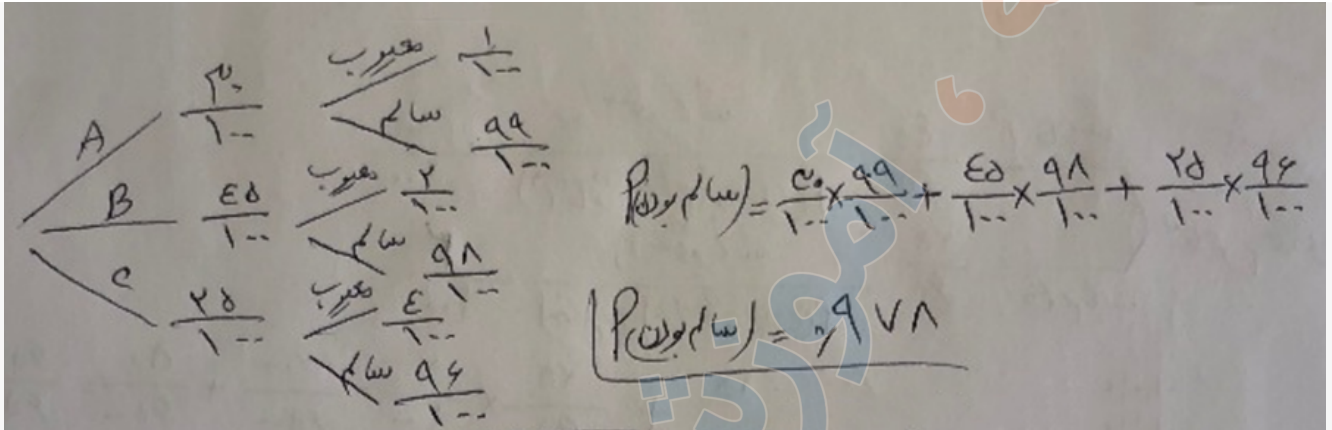 A ۳۰/۱۰۰ معیوب ۱/۱۰۰
سالم ۹۹/۱۰۰
B ۴۵/۱۰۰ معیوب ۲/۱۰۰
سالم ۹۸/۱۰۰
C ۲۵/۱۰۰ معیوب ۴/۱۰۰
سالم ۹۶/۱۰۰
P(سالم بودن) = ۳۰/۱۰۰ × ۹۹/۱۰۰ + ۴۵/۱۰۰ × ۹۸/۱۰۰ + ۲۵/۱۰۰ × ۹۶/۱۰۰
P(سالم بودن) = ۰٫۹۷۸